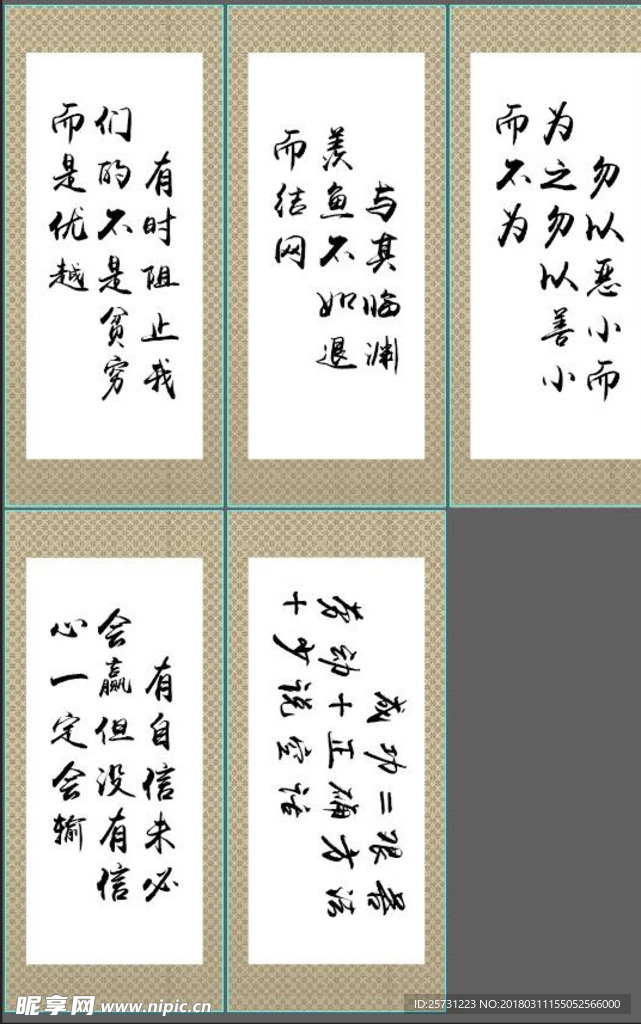 有时阻止我
们的不是贫穷
而是优越
与其临渊
羡鱼不如退
而结网
勿以恶小而
为之勿以善小
而不为
有自信未必
会赢但没有信
心一定会输
成功=艰苦
劳动+正确方法
+少说空话
昵享网 www.nipic.cn
ID:25731223 NO:20180311155052566000